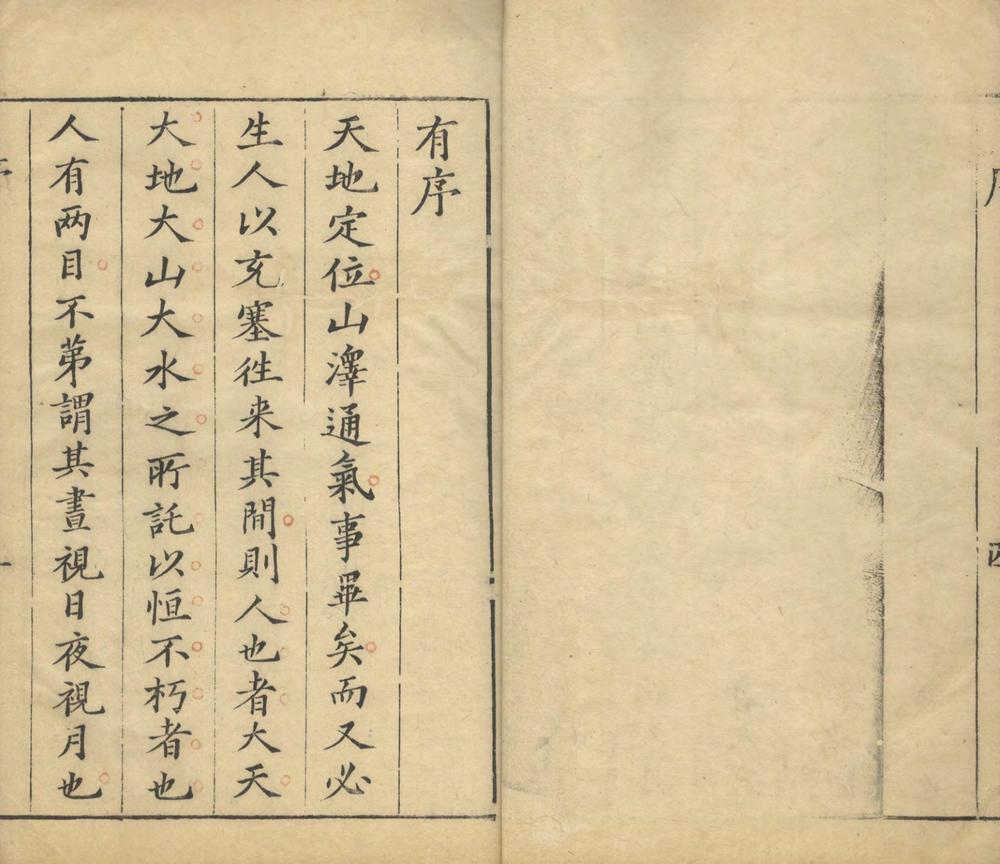 有序
天地定位山澤通氣事畢矣而又必
生人以充塞徃来其間則人也者大天
大地大山大水之所託以恒不朽者也
人有两目不第謂其晝視日夜視月也